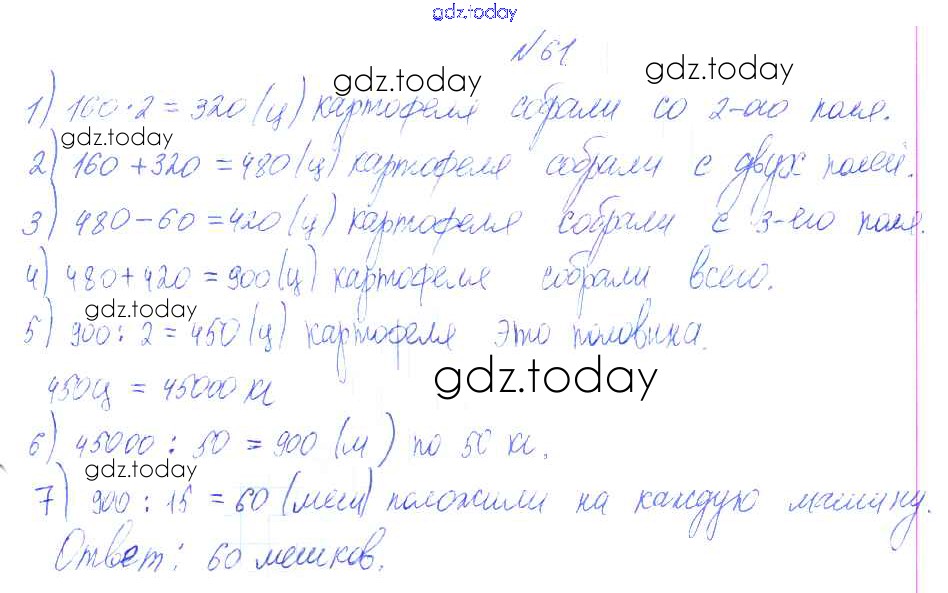 gdz.today
№61
gdz.today
gdz.today
1) 160·2=320(ц) картофеля собрали со 2-ого поля.
gdz.today
2) 160+320=480(ц) картофеля собрали с двух полей.
3) 480-60=420(ц) картофеля собрали с 3-его поля.
4) 480+420=900(ц) картофеля собрали всего.
gdz.today
5) 900:2=450(ц) картофеля это половина.
gdz.today
450ц = 45000 кг
6) 45000:50=900 (м) по 50 кг.
gdz.today
7) 900:15=60 (меш) положили на каждую машину.
Ответ: 60 мешков.